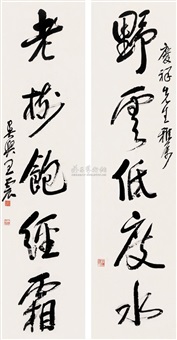 慶祥先生雅属
野雲低度水
老樹飽經霜
吳興王震